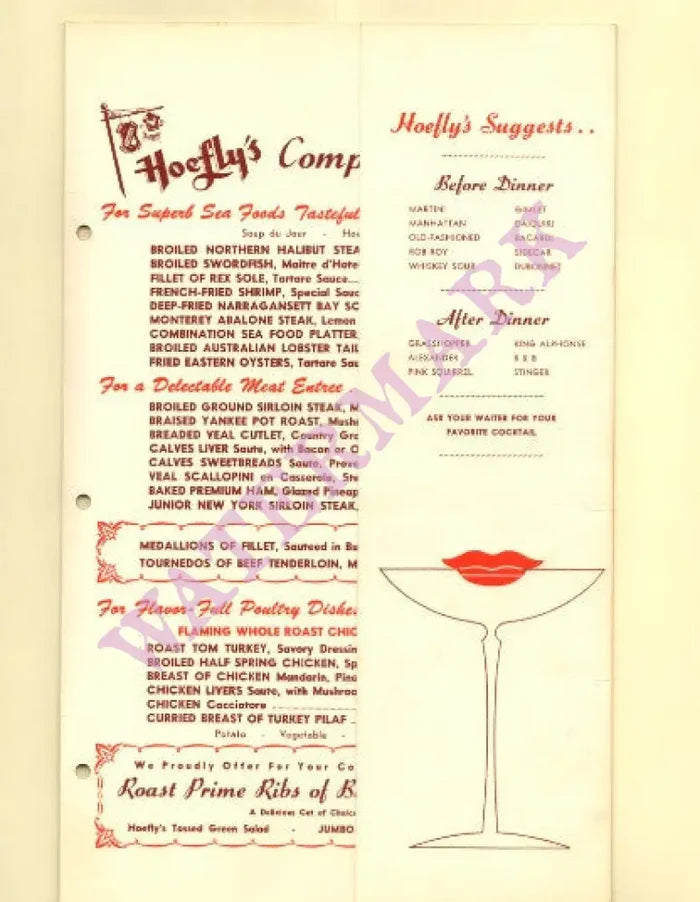 Hoefly's Comp
For Superb Sea Foods Tasteful
Soup du Jour - Hou
BROILED NORTHERN HALIBUT STEA
BROILED SWORDFISH, Maitre d'Hote
FILLET OF REX SOLE, Tartare Sauce....
FRENCH-FRIED SHRIMP, Special Sauc
DEEP-FRIED NARRAGANSETT BAY SC
MONTEREY ABALONE STEAK, Lemon
COMBINATION SEA FOOD PLATTER,
BROILED AUSTRALIAN LOBSTER TAIL
FRIED EASTERN OYSTERS, Tartare Sau
For a Delectable Meat Entree
BROILED GROUND SIRLOIN STEAK, M
BRAISED YANKEE POT ROAST, Mush
BREADED VEAL CUTLET, Country Gra
CALVES LIVER Saute, with Bacon or O
CALVES SWEETBREADS Saute, Prove
VEAL SCALLOPINI en Casserole, Ste
BAKED PREMIUM HAM, Glazed Pineap
JUNIOR NEW YORK SIRLOIN STEAK,
MEDALLIONS OF FILLET, Sauteed in Bu
TOURNEDOS OF BEEF TENDERLOIN, M
For Flavor-Full Poultry Dishes
FLAMING WHOLE ROAST CHIC
ROAST TOM TURKEY, Savory Dressin
BROILED HALF SPRING CHICKEN, Sp
BREAST OF CHICKEN Mandarin, Pine
CHICKEN LIVERS Saute, with Mushroo
CHICKEN Cacciatore
CURRIED BREAST OF TURKEY PILAF
Potato - Vegetable -
We Proudly Offer For Your Co
Roast Prime Ribs of B
A Delicious Cut of Choice
Hoefly's Tossed Green Salad - JUMBO
Hoefly's Suggests..
Before Dinner
MARTINI GIMLET
MANHATTAN DAIQUIRI
OLD-FASHIONED BACARDI
ROB ROY SIDECAR
WHISKEY SOUR DUBONNET
After Dinner
GRASSHOPPER KING ALPHONSE
ALEXANDER B & B
PINK SQUIRREL STINGER
ASK YOUR WAITER FOR YOUR
FAVORITE COCKTAIL
WATERMARK